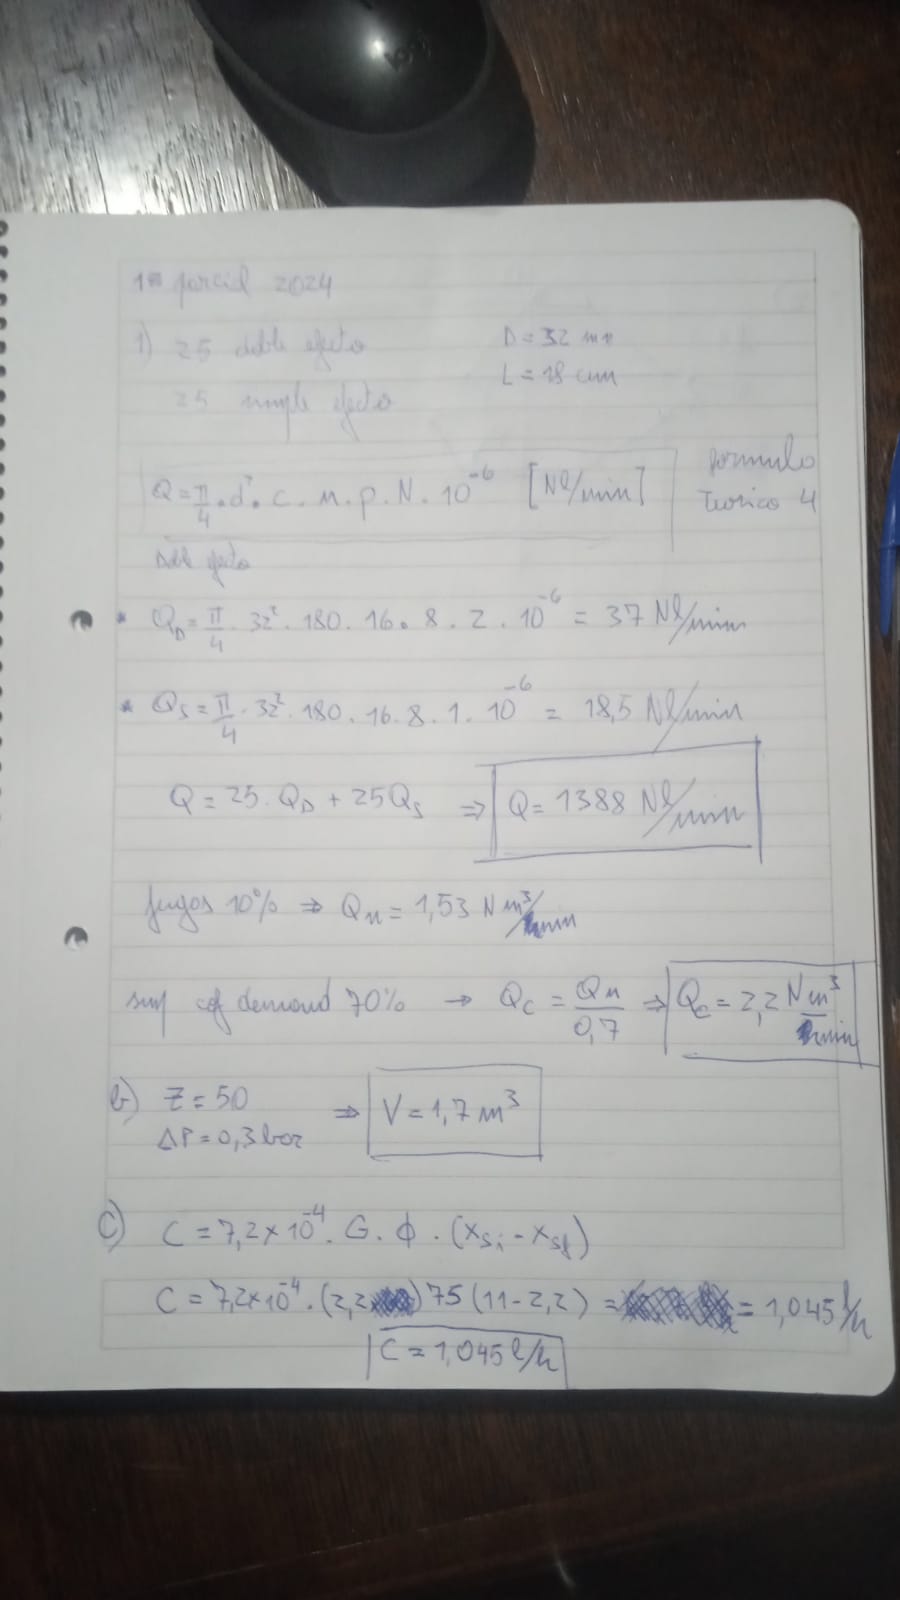 1er parcial 2024
1) 25 doble efecto D = 32 mm
25 simple efecto L = 18 cm
Q = π/4 . d² . c . n . p . N . 10⁻⁶ [Nl/min] formula
Teorico 4
Doble efecto
* Q_D = π/4 . 32² . 180 . 16 . 8 . 2 . 10⁻⁶ = 37 Nl/min
* Q_S = π/4 . 32² . 180 . 16 . 8 . 1 . 10⁻⁶ = 18,5 Nl/min
Q = 25 . Q_D + 25 Q_S ⇒ Q = 1388 Nl/min
fugas 10% ⇒ Q_n = 1,53 N m³/min
cof demand 70% → Q_C = Q_n/0,7 ⇒ Q_C = 2,2 N m³/min
b) Z = 50
ΔP = 0,3 bar ⇒ V = 1,7 m³
c) C = 7,2 × 10⁻⁴ . G . ϕ . (X_Si - X_Sf)
C = 7,2×10⁻⁴ . (2,2) 75 (11 - 2,2) = = 1,045 l/h
C = 1,045 l/h